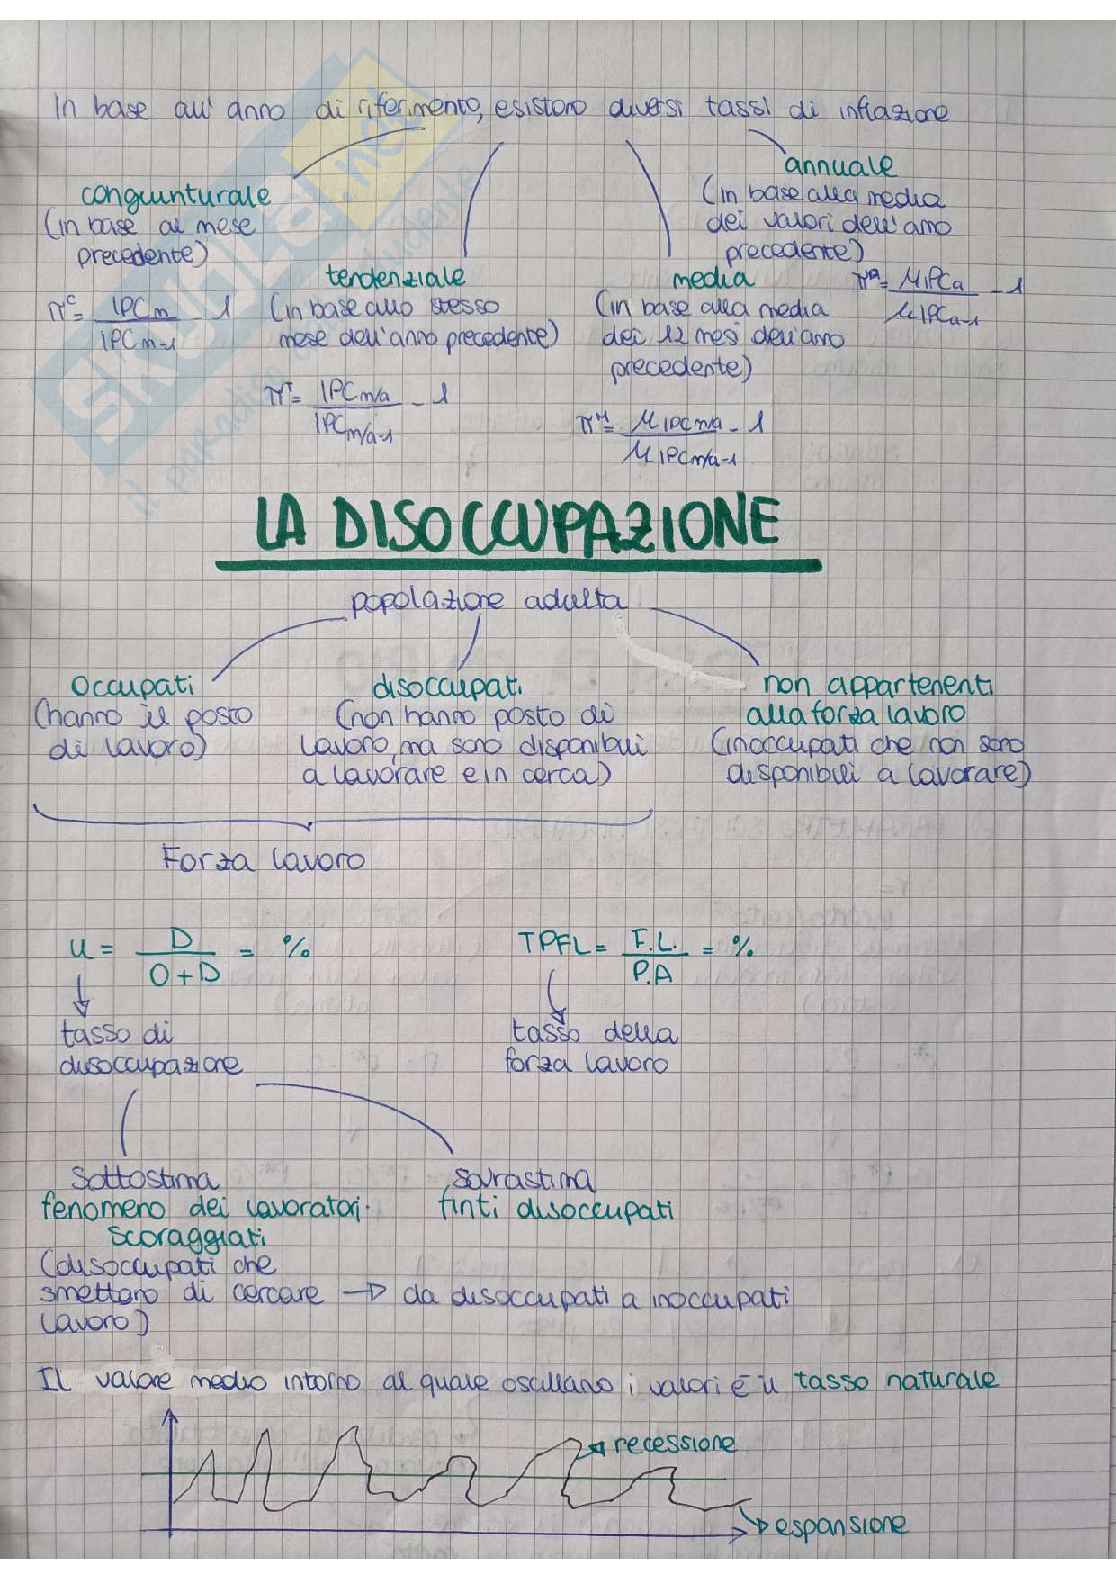 In base all'anno di riferimento, esistono diversi tassi di inflazione
congiunturale
(in base al mese
precedente)
π^c = IPCm / IPCm-1 - 1
tendenziale
(in base allo stesso
mese dell'anno precedente)
π^T = IPCm/a / IPCm/a-1 - 1
media
(in base alla media
dei 12 mesi dell'anno
precedente)
π^M = μ IPCm/a / μ IPCm/a-1 - 1
annuale
(in base alla media
dei valori dell'anno
precedente)
π^a = μIPCa / μIPCa-1 - 1
skuola.net
LA DISOCCUPAZIONE
popolazione adulta
Occupati
(hanno il posto
di lavoro)
disoccupati
(non hanno posto di
lavoro, ma sono disponibili
a lavorare e in cerca)
non appartenenti
alla forza lavoro
(inoccupati che non sono
disponibili a lavorare)
Forza lavoro
u = D / O+D = %
tasso di
disoccupazione
TPFL = F.L. / P.A = %
tasso della
forza lavoro
Sottostima
fenomeno dei lavoratori
scoraggiati
(disoccupati che
smettono di cercare → da disoccupati a inoccupati
lavoro)
sovrastima
finti disoccupati
Il valore medio intorno al quale oscillano i valori è il tasso naturale
recessione
espansione